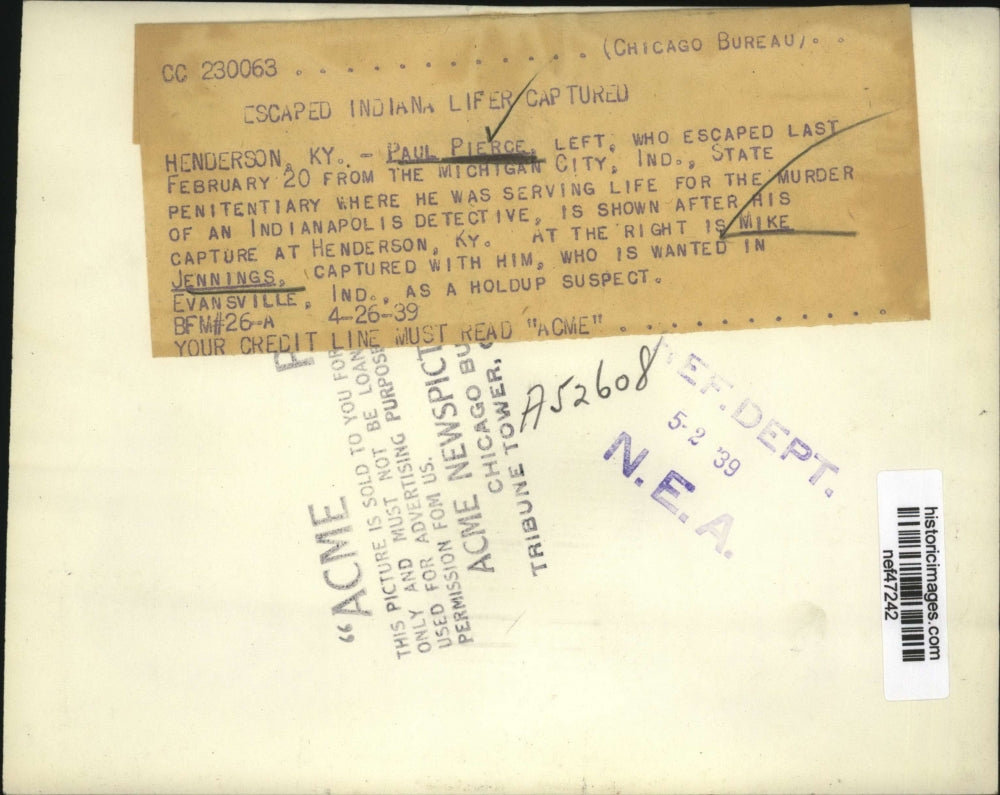 CC 230063 . . . . . . . . . . . . (CHICAGO BUREAU). . .
ESCAPED INDIANA LIFER CAPTURED
HENDERSON, KY. - PAUL PIERCE, LEFT, WHO ESCAPED LAST
FEBRUARY 20 FROM THE MICHIGAN CITY, IND., STATE
PENITENTIARY WHERE HE WAS SERVING LIFE FOR THE MURDER
OF AN INDIANAPOLIS DETECTIVE, IS SHOWN AFTER HIS
CAPTURE AT HENDERSON, KY. AT THE RIGHT IS MIKE
JENNINGS, CAPTURED WITH HIM, WHO IS WANTED IN
EVANSVILLE, IND., AS A HOLDUP SUSPECT.
BFM#26-A 4-26-39
YOUR CREDIT LINE MUST READ "ACME" . . . . . . . . . . .
"ACME
THIS PICTURE IS SOLD TO YOU FOR
ONLY AND MUST NOT BE LOAN
USED FOR ADVERTISING PURPOS
PERMISSION FOM US.
ACME NEWSPICT
CHICAGO BU
TRIBUNE TOWER,
A52608
EF. DEPT.
5-2 '39
N.E.A.
historicimages.com
nef47242